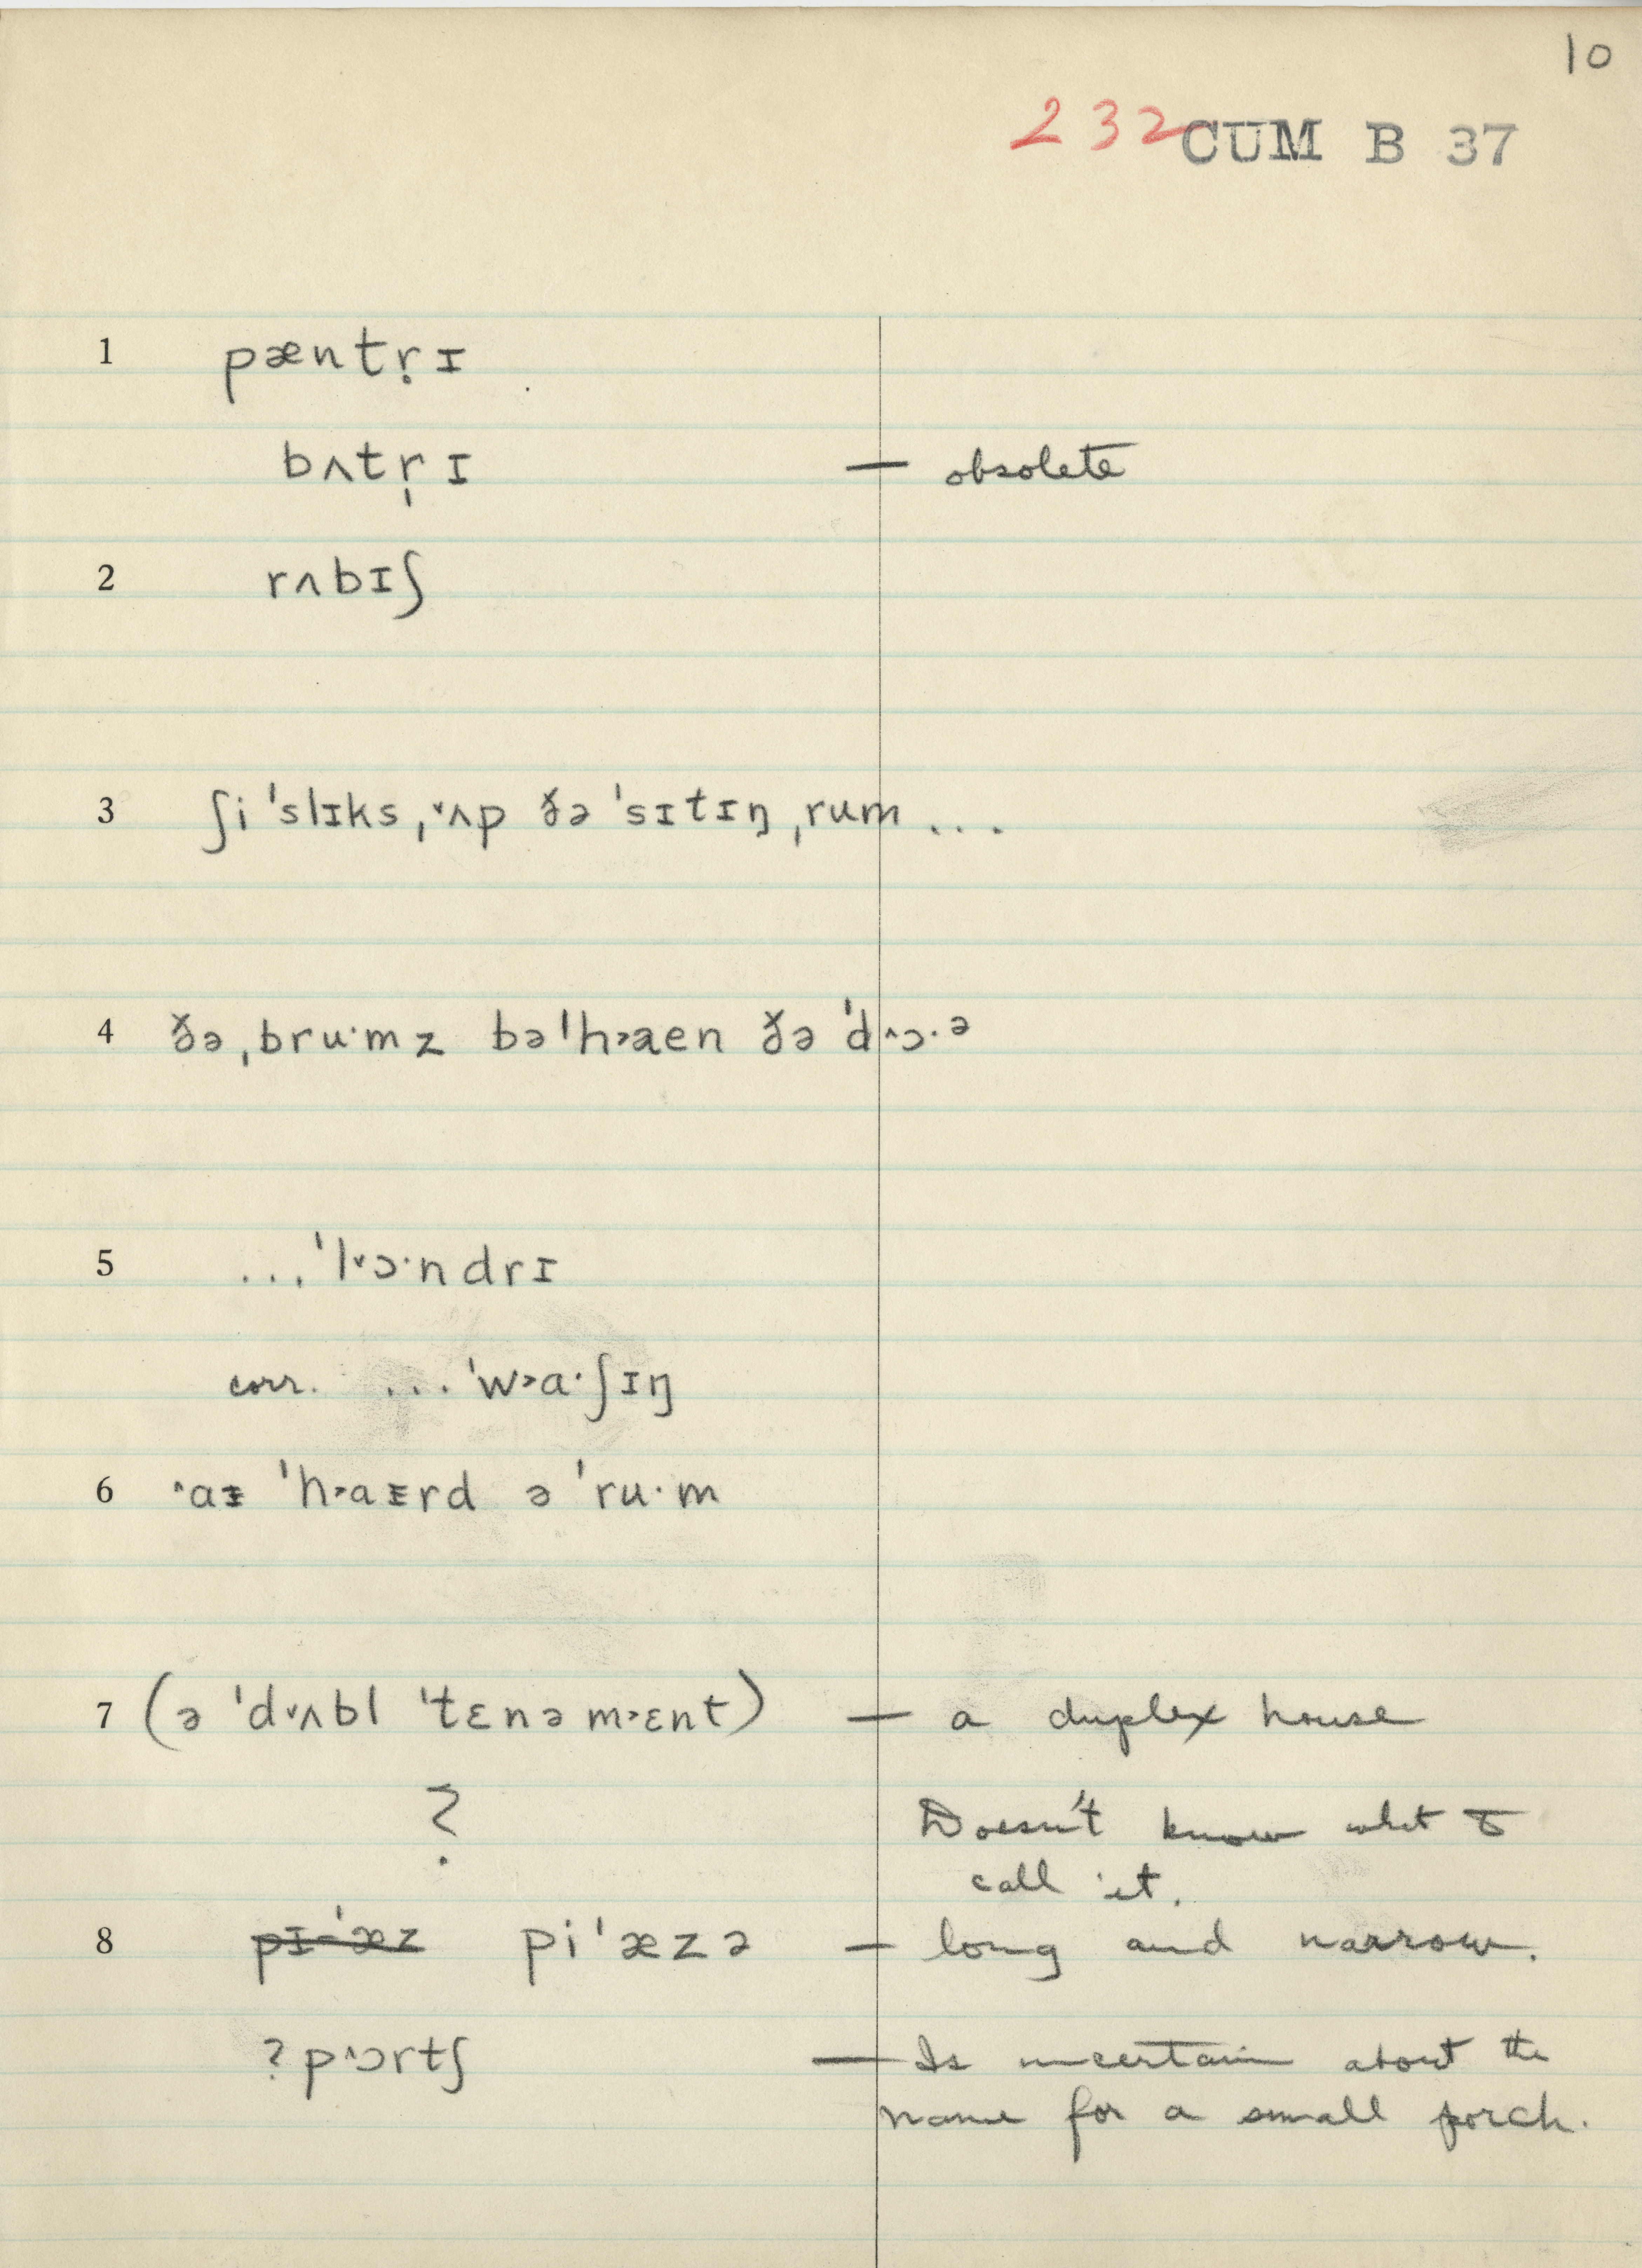 10
232 CUM B 37
1 pæntṛɪ
bʌtr̩ɪ — obsolete
2 rʌbɪʃ
3 ʃi ˈslɪks ˌ˅ʌp ðə ˈsɪtɪŋ ˌrum ...
4 ðə ˌbru·mz bəˈh˃aen ðə ˈd˄ɔ·ᵊ
5 ... ˈl˅ɔ·ndrɪ
corr. ... ˈw˃ɑ·ʃɪŋ
6 ˄aᵻ ˈh˃aᴇrd ə ˈru·m
7 (ə ˈd˅ʌbl ˈtɛnəm˃ɛnt) — a duplex house
? Doesn't know what to
call it.
8 pɪ-ˈæz piˈæzə — long and narrow.
? p˄ɔrtʃ — Is uncertain about the
name for a small porch.